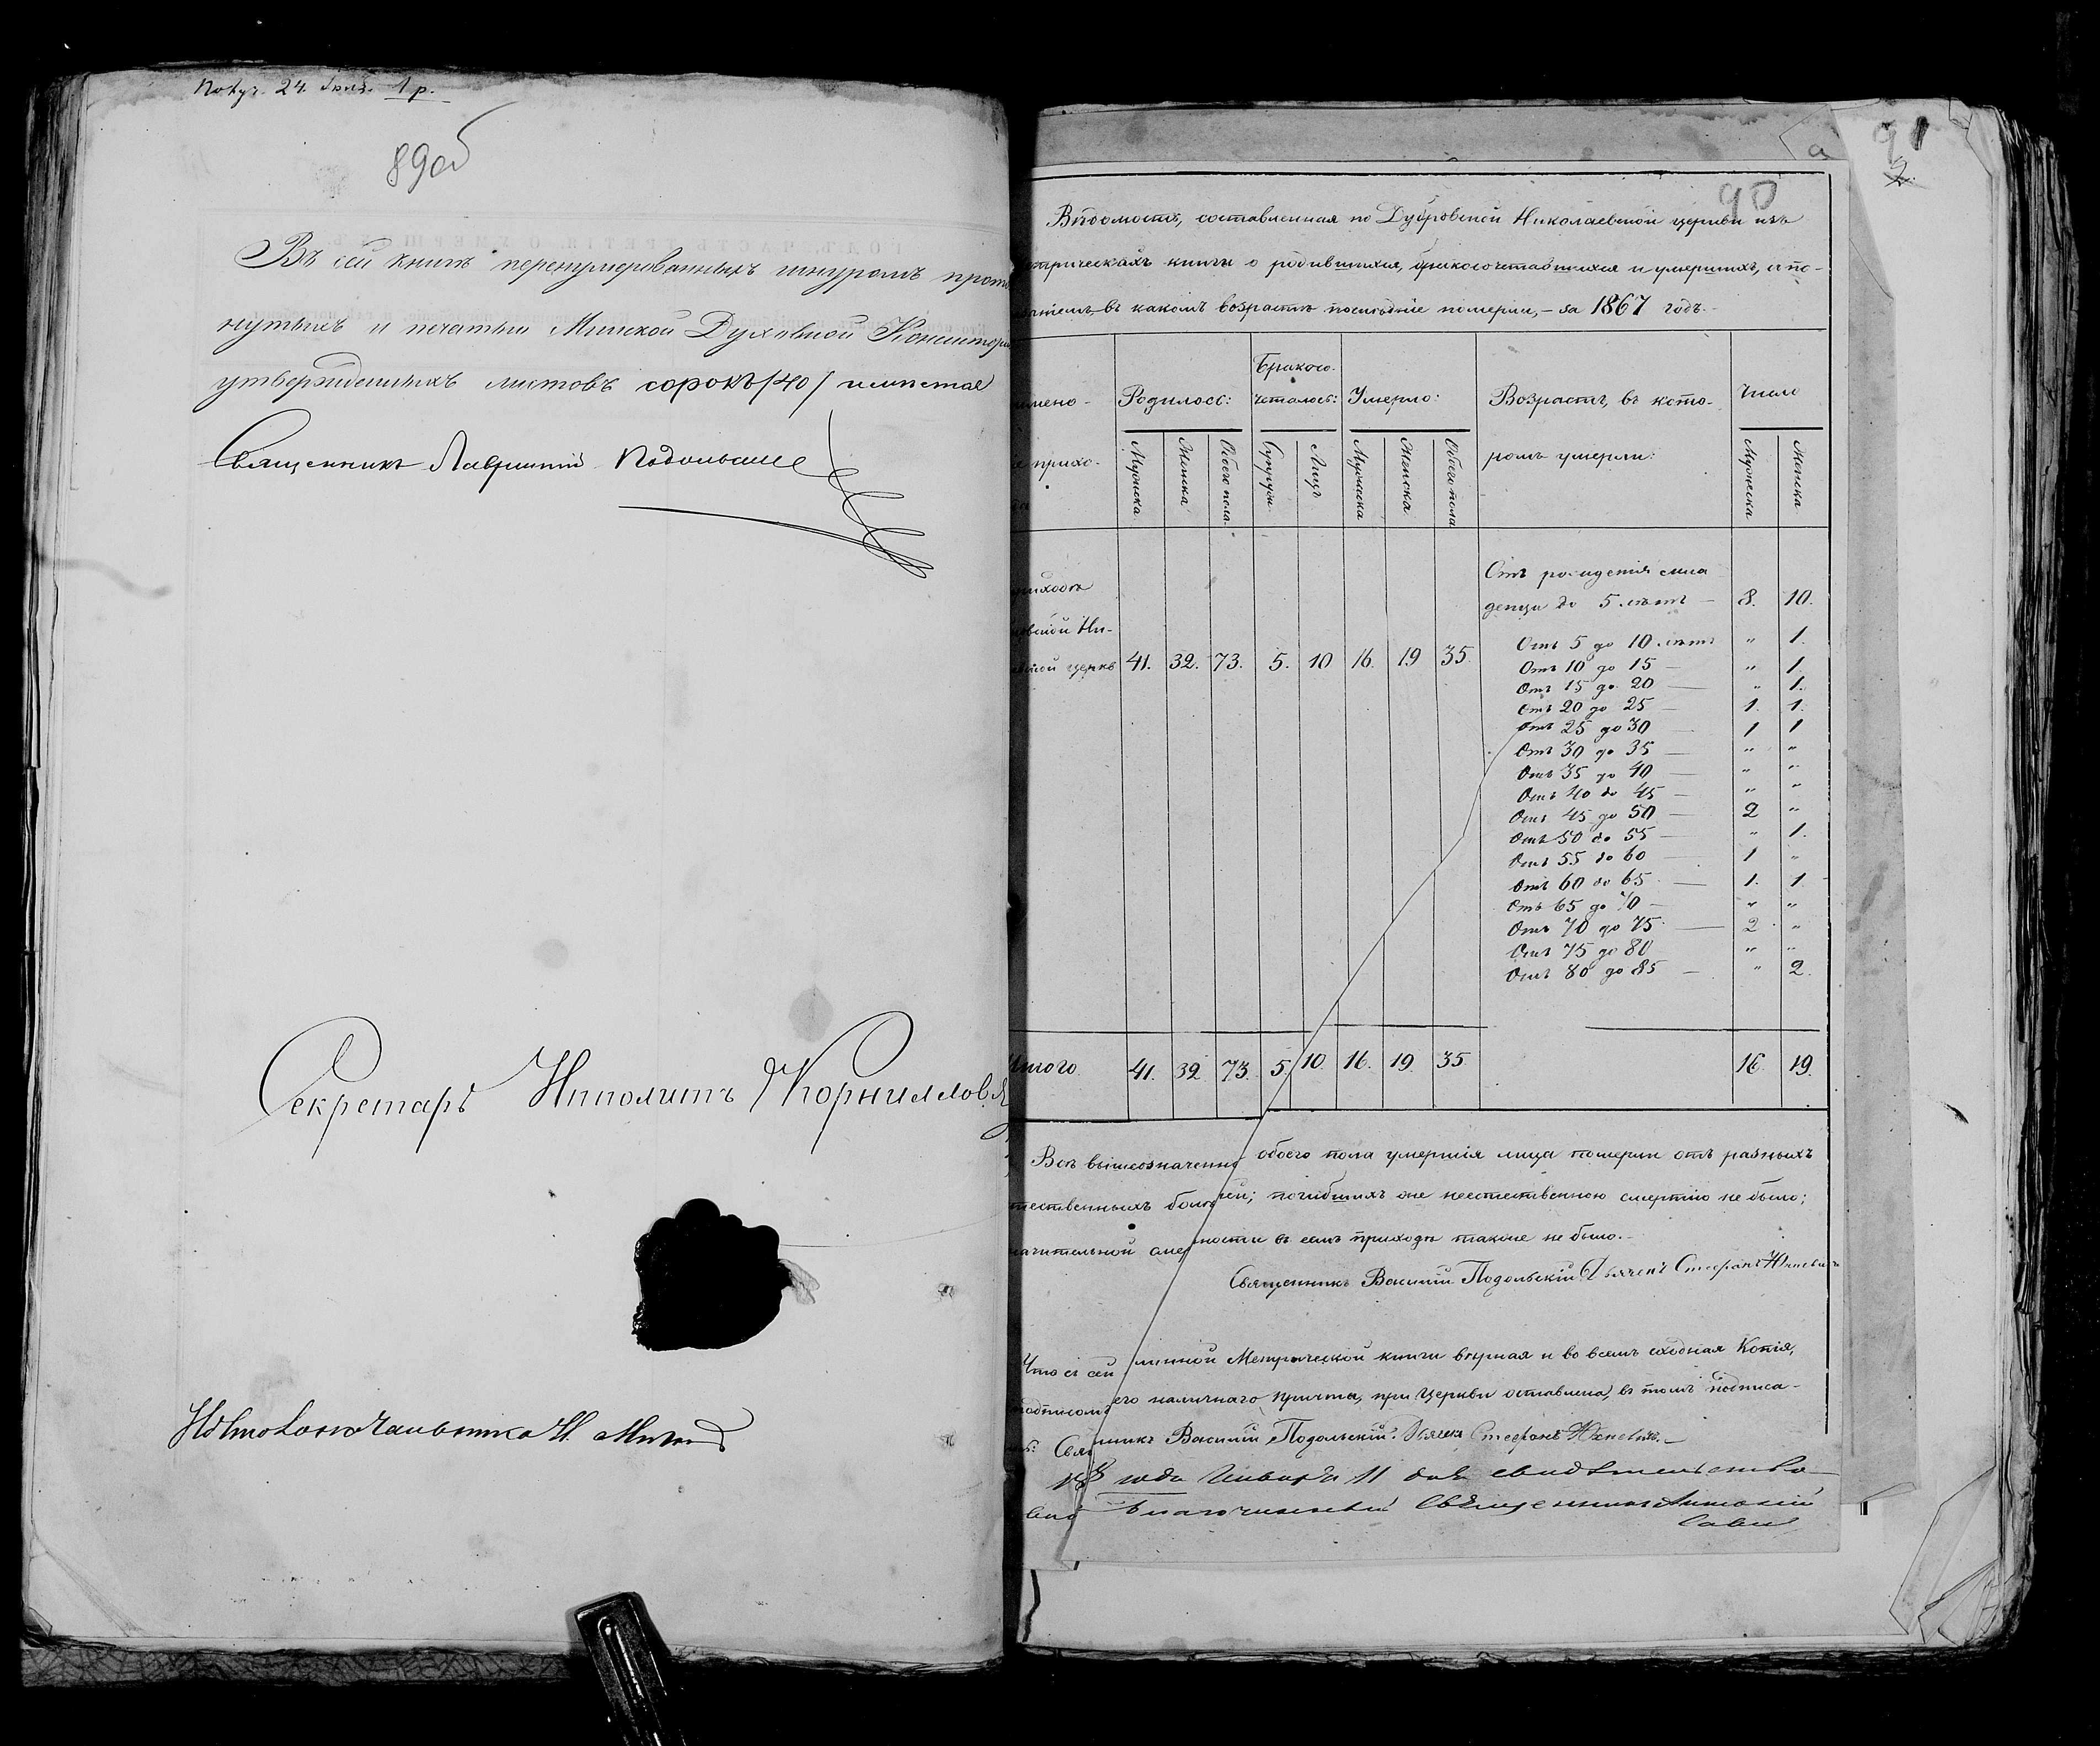 24. 1 р.
89об
Въ сей книгѣ перенумерованныхъ шнуромъ прот
нутыхъ и печатью Минской Духовной Консистор
утвержденныхъ листовъ сорокъ /40/
Священникъ Подольскій
Секретарь Ипполитъ Корниллов
91
2.
90
Вѣдомость, составленная по Дубровской Николаевской церкви изъ
трическихъ книгъ о родившихся, бракосочетавшихся и умершихъ, съ по-
аніемъ въ какомъ возрастѣ послѣдніе померли, – за 1867 годъ.
имено- Родилось: Бракосо- четалось: Умерло: Возрастъ, въ кото- Число
прихо- ромъ умерли:
Мужеска Женска Обоего пола Супруж. Лицъ Мужеска Женска Обоего пола Мужеска Женска
приходѣ
овской Ни-
церкв 41. 32. 73. 5. 10 16. 19 35.
Отъ рожденія мла
денцы до 5 лѣтъ — 8. 10.
Отъ 5 до 10 лѣтъ " 1.
Отъ 10 до 15 — " 1.
Отъ 15 до 20 — " 1.
Отъ 20 до 25 — 1. 1.
Отъ 25 до 30 — 1 1
Отъ 30 до 35 — " "
Отъ 35 до 40 — " "
Отъ 40 до 45 — " "
Отъ 45 до 50 — 2 "
Отъ 50 до 55 — " 1.
Отъ 55 до 60 — 1 "
Отъ 60 до 65 — 1. 1
Отъ 65 до 70 — " "
Отъ 70 до 75 — 2 "
Отъ 75 до 80 " "
Отъ 80 до 85 — " 2.
Итого. 41. 32 73. 5. 10. 16. 19 35 16. 19.
Всѣ вышеозначенно обоего пола умершія лица померли отъ разныхъ
тественныхъ болѣ ней; погибшихъ неестественною смертію не было;
начительной смер ности въ семъ приходѣ также не было.
Священникъ Василій Подольскій Дьячекъ Стефанъ
Что съ сей линной Метрической книги вѣрная и во всемъ сходная Копія,
подписомъ его наличнаго причта, при Церкви оставлена, въ томъ подписа-
Свя нникъ Василій Подольскій. Дьячекъ Стефанъ
года Января 11 дня свидѣтельство
Благочинный Священникъ Антоній